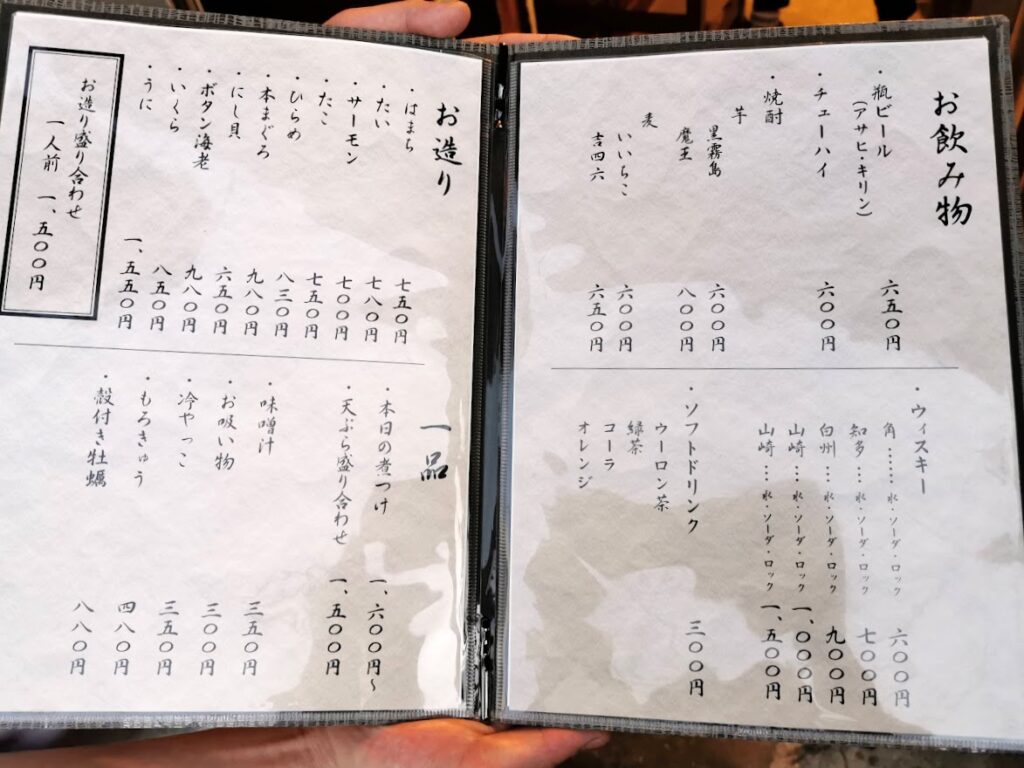 お飲み物
・瓶ビール 六五〇円
(アサヒ・キリン)
・チューハイ 六〇〇円
・焼酎
芋
黒霧島 六〇〇円
魔王 八〇〇円
麦
いいちこ 六〇〇円
吉四六 六五〇円
・ウィスキー
角……水・ソーダ・ロック 六〇〇円
知多…水・ソーダ・ロック 七〇〇円
白州…水・ソーダ・ロック 九〇〇円
山崎…水・ソーダ・ロック 一、〇〇〇円
山崎…水・ソーダ・ロック 一、五〇〇円
・ソフトドリンク 三〇〇円
ウーロン茶
緑茶
コーラ
オレンジ
お造り
・はまち 七五〇円
・たい 七八〇円
・サーモン 七〇〇円
・たこ 七五〇円
・ひらめ 八三〇円
・本まぐろ 九八〇円
・にし貝 六五〇円
・ボタン海老 九八〇円
・いくら 八五〇円
・うに 一、五五〇円
お造り盛り合わせ
一人前 一、五〇〇円
一品
・本日の煮つけ 一、六〇〇円〜
・天ぷら盛り合わせ 一、五〇〇円
・味噌汁 三五〇円
・お吸い物 三〇〇円
・冷やっこ 三五〇円
・もろきゅう 四八〇円
・殻付き牡蠣 八八〇円